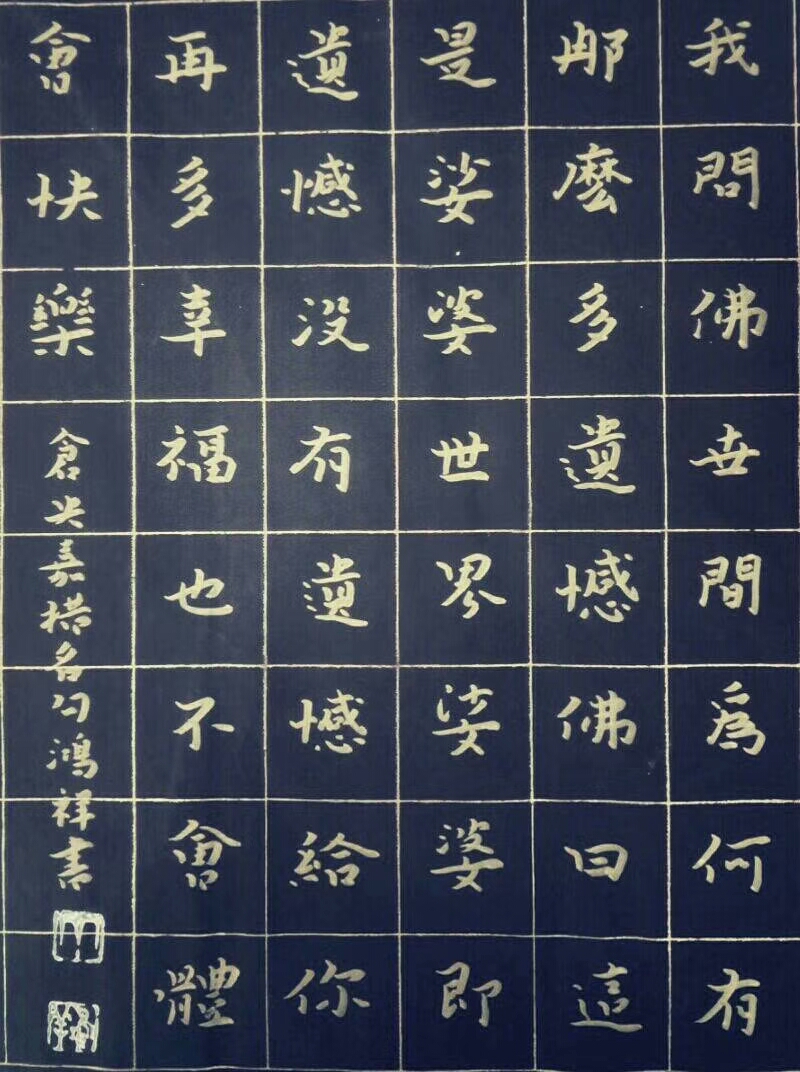 我問佛世間為何有
那麼多遺憾佛曰這
是娑婆世界娑婆即
遺憾沒有遺憾給你
再多幸福也不會體
會快樂
倉央嘉措名句鴻祥書